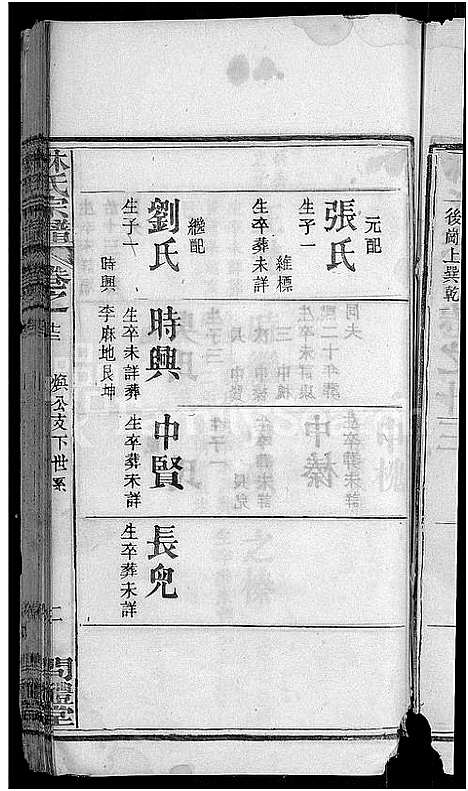 後崗上巽乾
元配
張氏
生子一
維標
生卒葬未詳
繼配
劉氏
生子一
時興
時興
生卒未詳葬
李麻地艮坤
中賢
生卒葬未詳
長兒
生卒葬未詳
林氏宗譜
卷之一
煥公支下世系
二
問禮堂